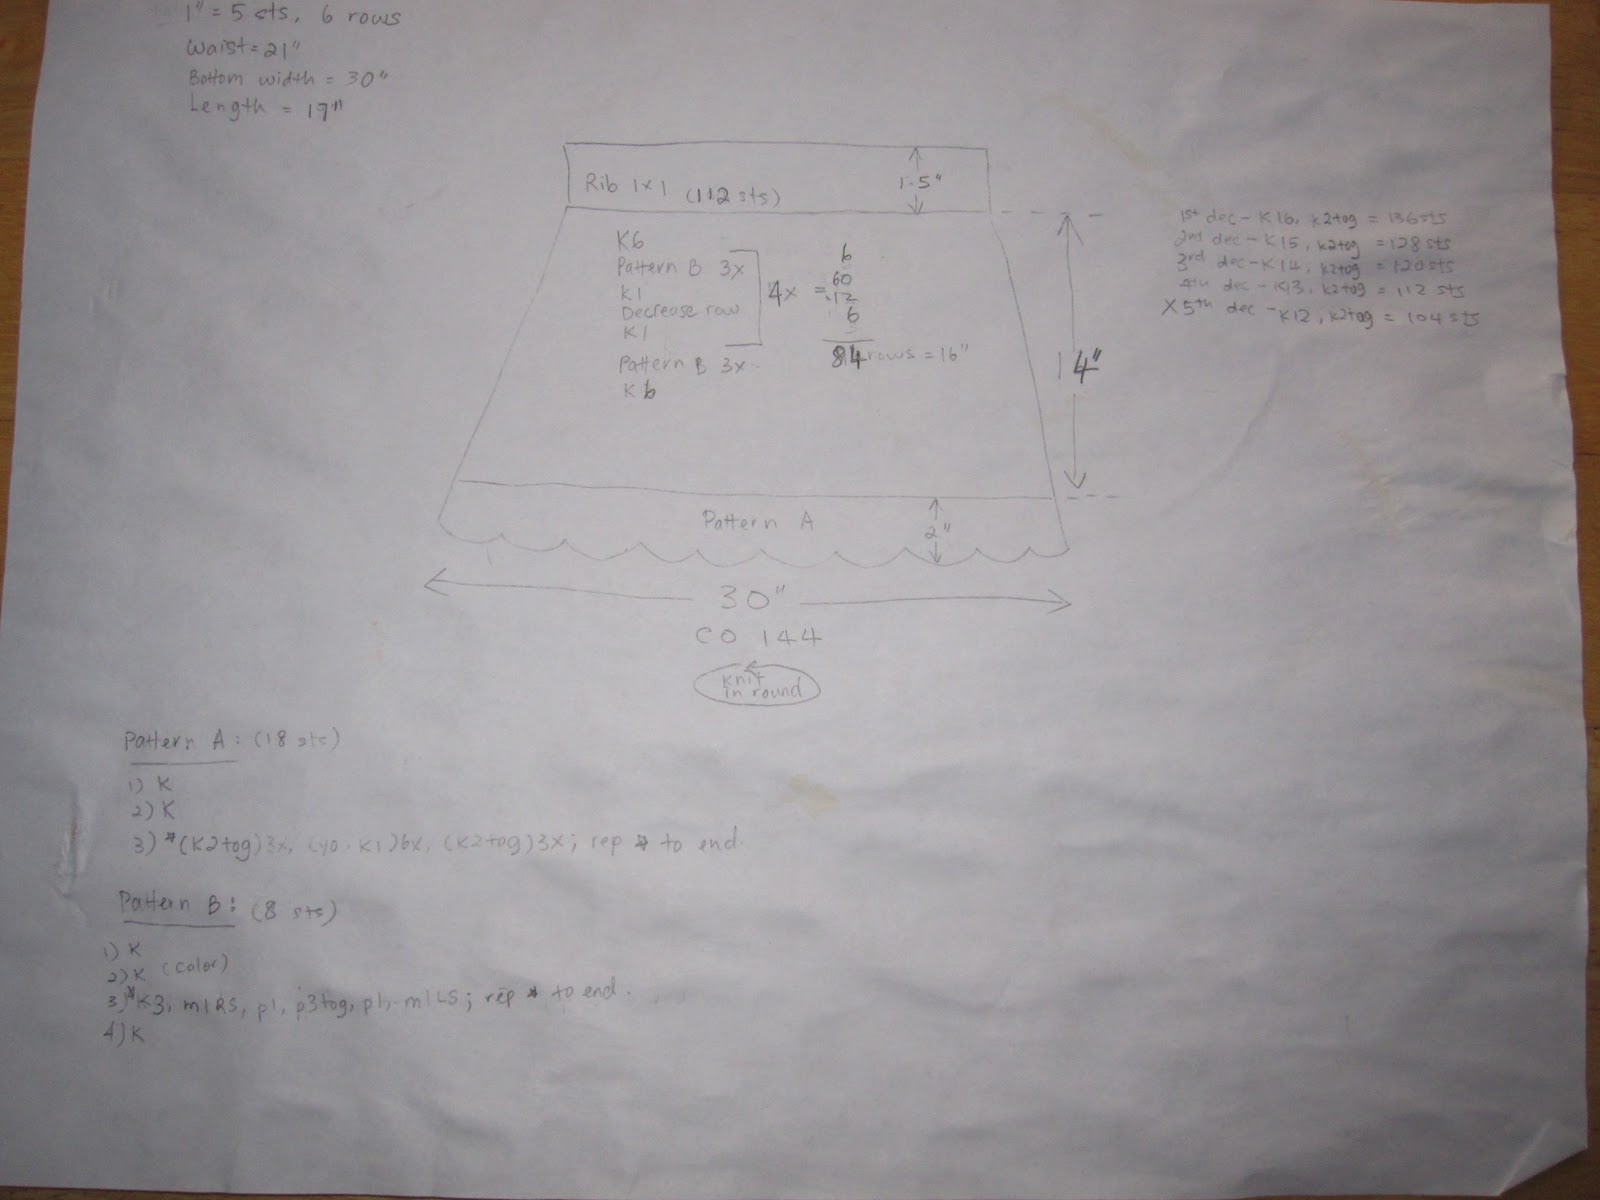 1" = 5 sts, 6 rows
Waist = 21"
Bottom width = 30"
Length = 17"
Rib 1x1 (112 sts)
1.5"
K6
Pattern B 3x
K1
Decrease row
K1
4x =
Pattern B 3x
K6
6
60
12
6
84 rows = 16"
14"
1st dec - K16, K2tog = 136 sts
2nd dec - K15, K2tog = 128 sts
3rd dec - K14, K2tog = 120 sts
4th dec - K13, K2tog = 112 sts
X 5th dec - K12, K2tog = 104 sts
Pattern A
2"
30"
CO 144
knit
in round
Pattern A: (18 sts)
1) K
2) K
3) *(K2tog)3x, (yo. K1)6x, (K2tog)3x; rep * to end.
Pattern B: (8 sts)
1) K
2) K (color)
3)* K3, m1RS, p1, p3tog, p1, m1LS; rep * to end.
4) K